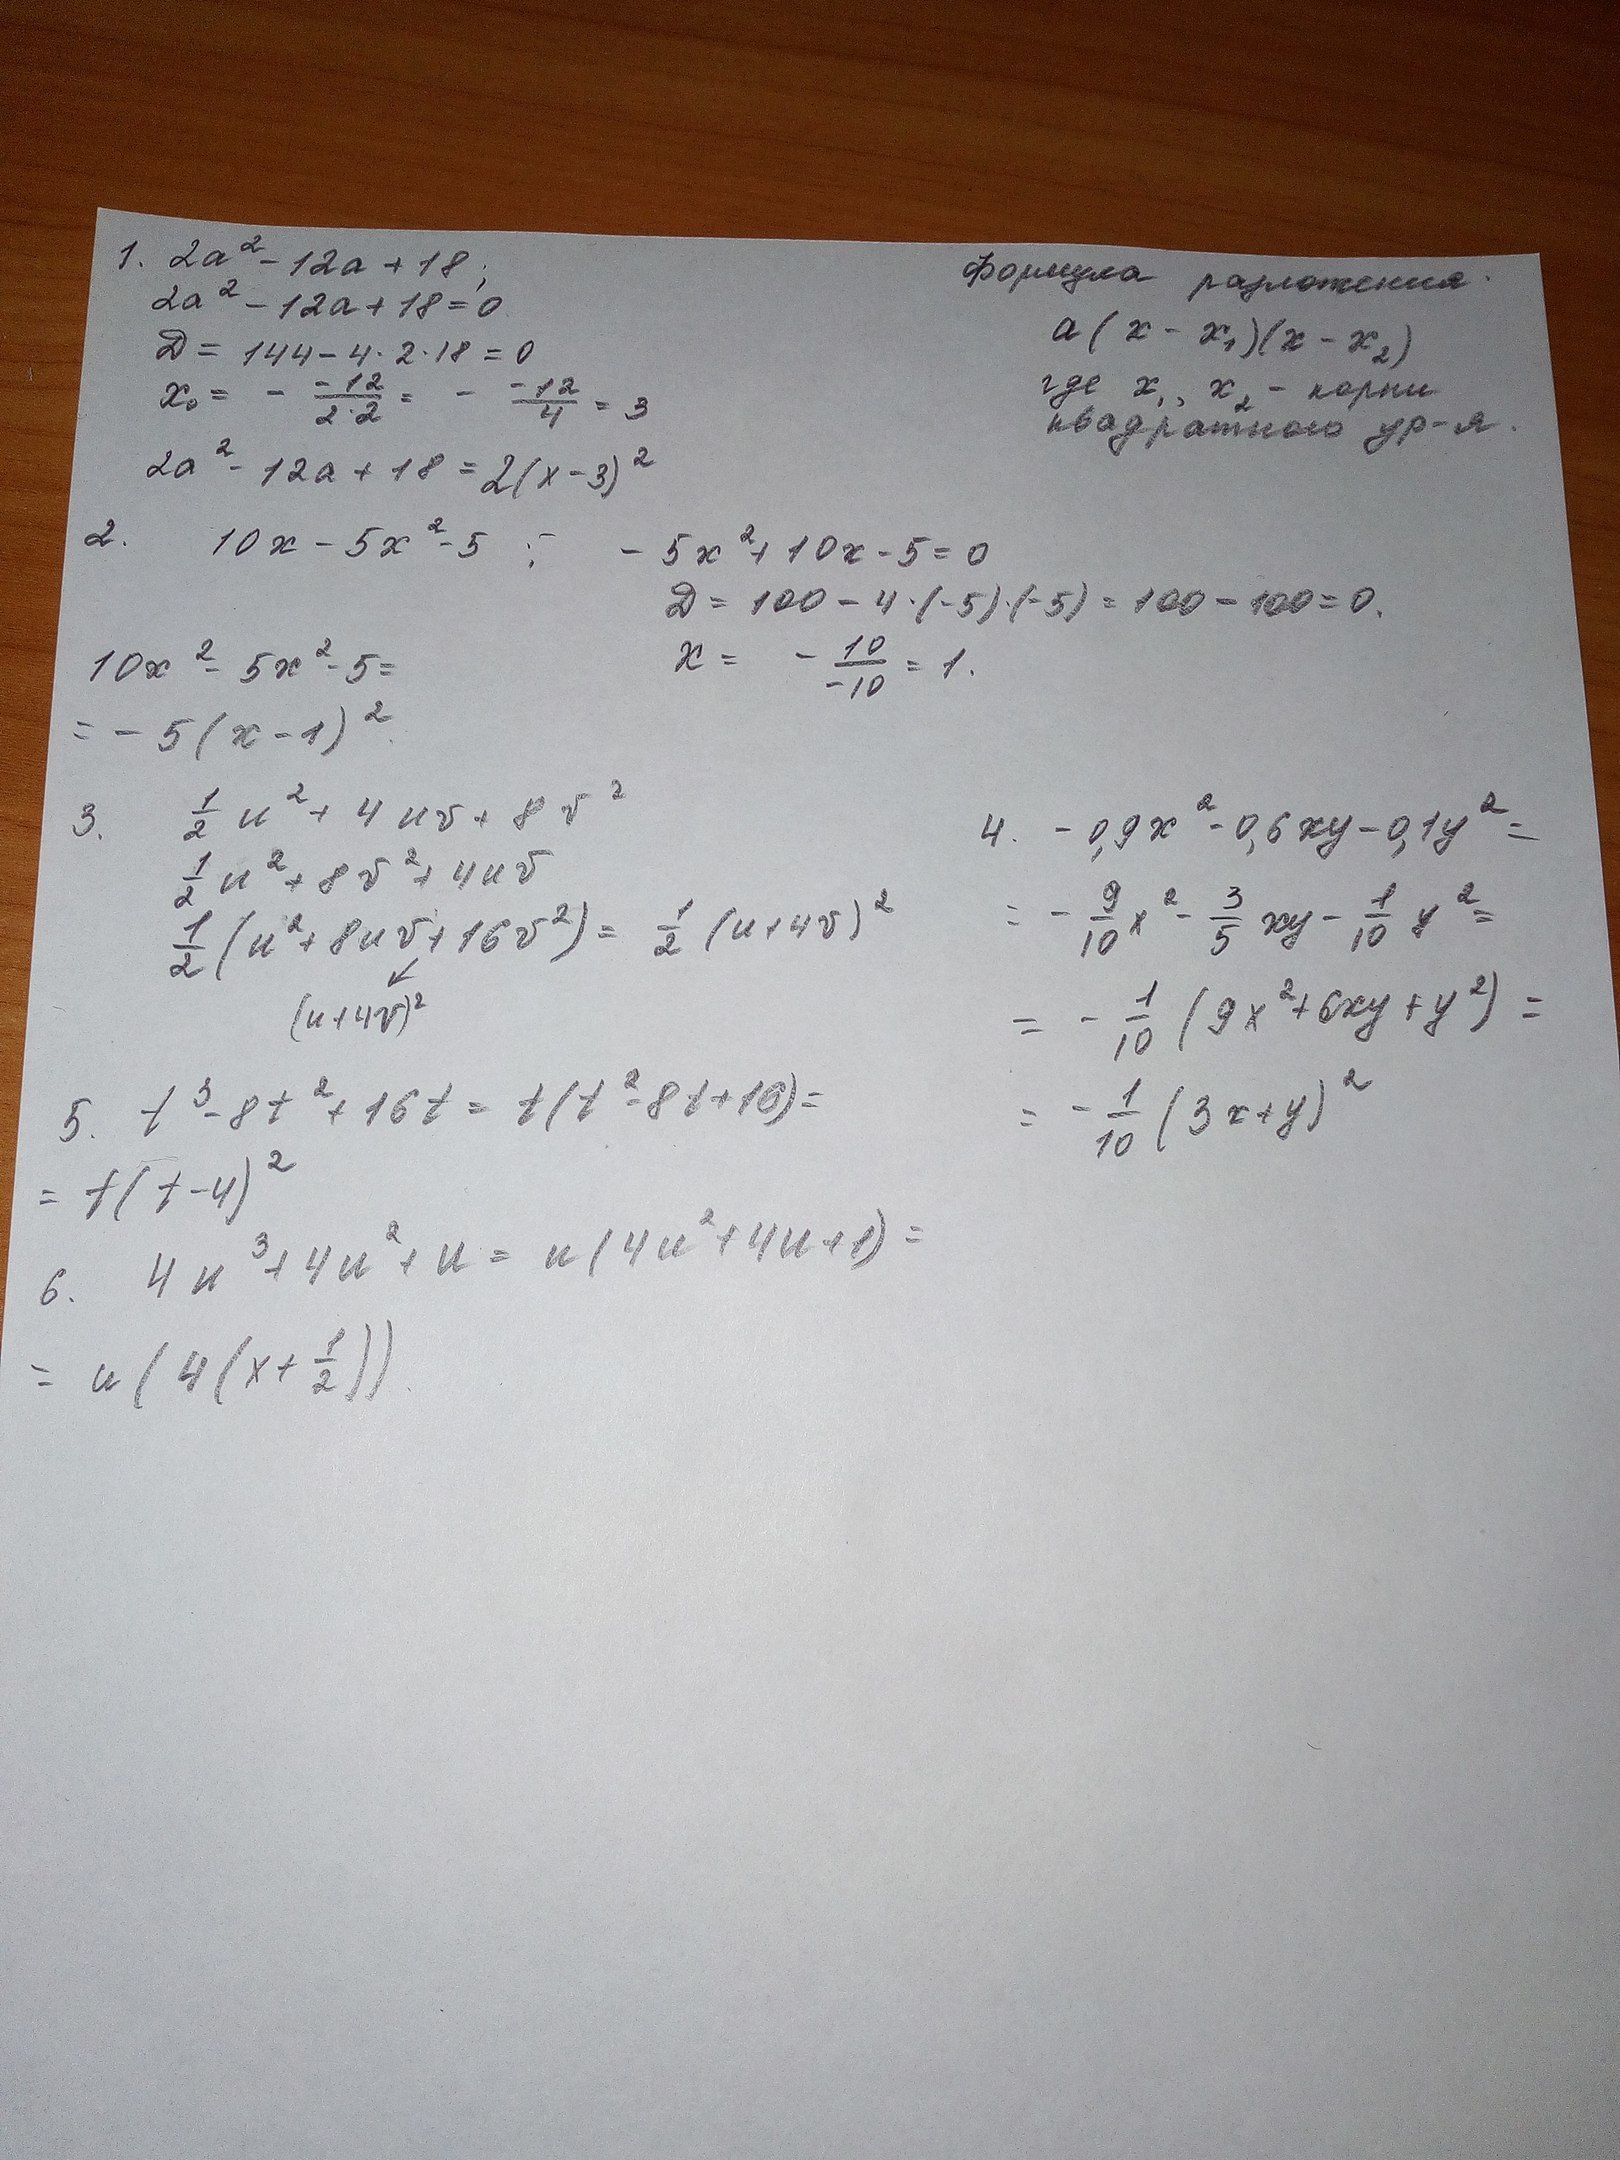 1. 2a² - 12a + 18;
2a² - 12a + 18 = 0
D = 144 - 4·2·18 = 0
x₀ = - -12/2·2 = - -12/4 = 3
2a² - 12a + 18 = 2(x - 3)²
Формула разложения.
a(x - x₁)(x - x₂)
где x₁, x₂ - корни
квадратного ур-я.
2. 10x - 5x² - 5 ; - 5x² + 10x - 5 = 0
D = 100 - 4·(-5)·(-5) = 100 - 100 = 0.
x = - 10/-10 = 1.
10x² - 5x² - 5 =
= - 5(x - 1)².
3. 1/2 u² + 4uv + 8v²
1/2 u² + 8v² + 4uv
1/2 (u² + 8uv + 16v²) = 1/2 (u + 4v)²
↙
(u + 4v)²
4. - 0,9x² - 0,6xy - 0,1y² =
= - 9/10 x² - 3/5 xy - 1/10 y² =
= - 1/10 (9x² + 6xy + y²) =
= - 1/10 (3x + y)²
5. t³ - 8t² + 16t = t(t² - 8t + 16) =
= t(t - 4)²
6. 4u³ + 4u² + u = u(4u² + 4u + 1) =
= u(4(x + 1/2)).